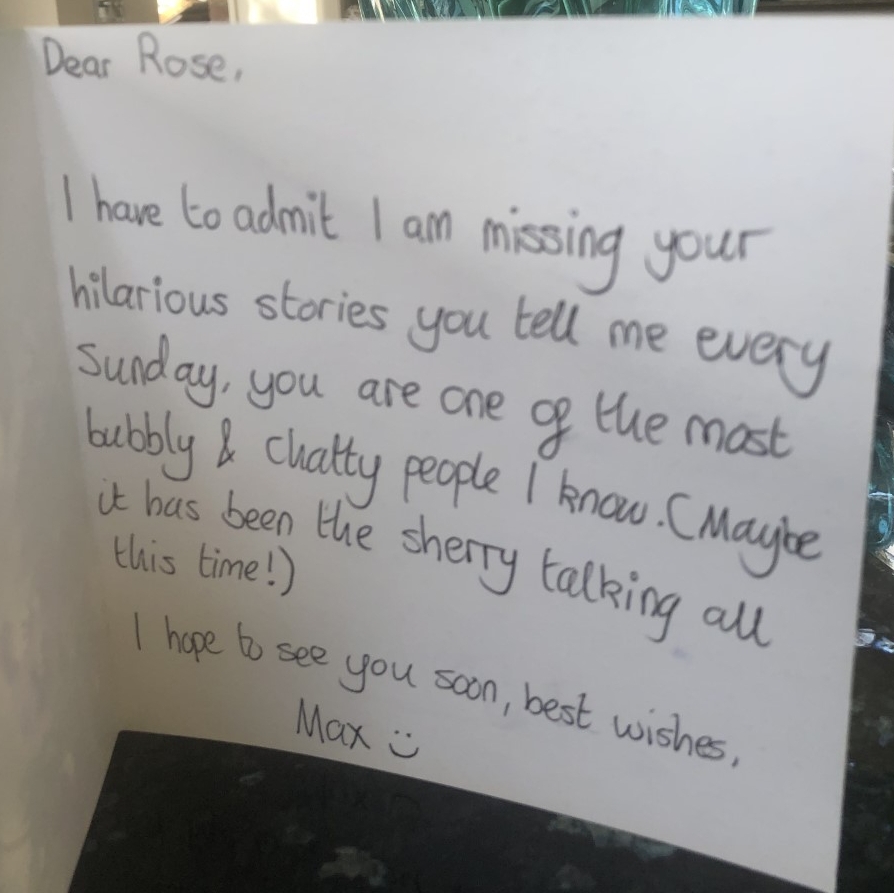 Dear Rose,
I have to admit I am missing your
hilarious stories you tell me every
Sunday, you are one of the most
bubbly & chatty people I know. (Maybe
it has been the sherry talking all
this time!)
I hope to see you soon, best wishes,
Max :)